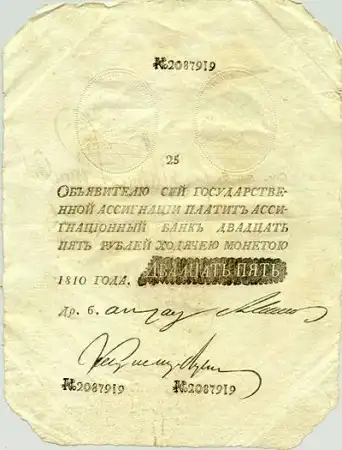 №2087919
25
ОБЪЯВИТЕЛЮ СЕЙ ГОСУДАРСТВЕ-
ННОЙ АССИГНАЦІИ ПЛАТИТЪ АССИ-
ГНАЦІОННЫЙ БАНКЪ ДВАДЦАТЬ
ПЯТЬ РУБЛЕЙ ХОДЯЧЕЮ МОНЕТОЮ
1810 ГОДА. ДВАДЦАТЬ ПЯТЬ
Др. б.
№2087919 №2087919